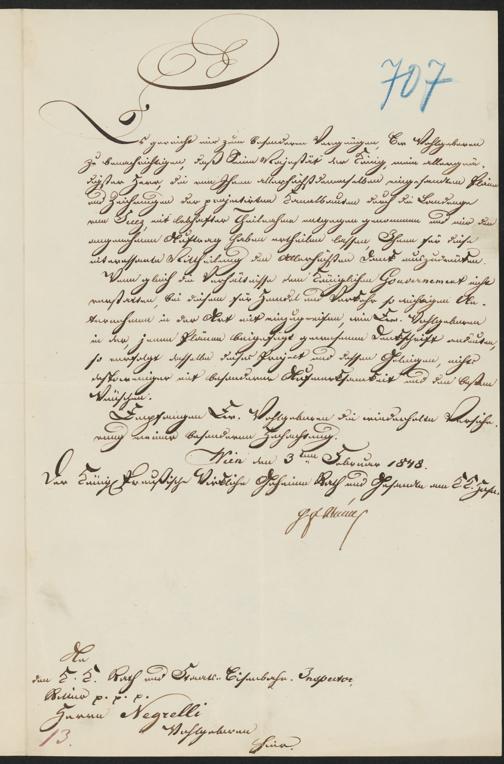 707
Es gereicht mir zum besondern Vergnügen Ew. Wohlgeboren
zu benachrichtigen, daß Seine Majestät der König mein allergnä-
digster Herr, die von Ihnen allerhöchstdemselben eingesandten Pläne
und Zeichnungen der projectirten Canalbauten durch die Landenge
von Suez, mit lebhafter Theilnahme entgegen genommen und mir den
angenehmen Auftrag haben ertheilen lassen Ihnen für diese
interessante Mittheilung den Allerhöchsten Dank auszudrücken.
Wenn gleich die Verhältnisse dem Königlichen Gouvernement nicht
verstatten bei diesem für Handel und Verkehr so wichtigen Un-
ternehmen in der Art mit einzugreifen, wie Ew. Wohlgeboren
in der jenen Plänen beigefügt gewesenen Denkschrift andeuten,
so verfolgt dasselbe dieses Project und dessen Gelingen nichts
destoweniger mit besonderer Aufmerksamkeit und den besten
Wünschen.
Empfangen Ew. Wohlgeboren die wiederholte Versiche-
rung meiner besonderen Hochachtung.
Wien den 3ten Februar 1848.
Der Königl. Preußische Wirkliche Geheime Rath und Gesandte am KK. Hofe.
An
den K. K. Rath und Staats-Eisenbahn-Inspector,
Ritter p. p. p.
Herrn Negrelli
Wohlgeboren
hier.
13.